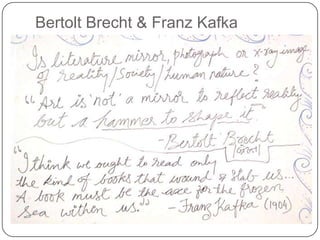 Bertolt Brecht & Franz Kafka
Is literature mirror, photograph or x-ray image
of reality/Society/human nature?
"Art is 'not' a mirror to reflect reality
but a hammer to shape it"
- Bertolt Brecht
"I think we ought to read only
the kind of books that wound & stab us...
A book must be the axe for the frozen
Sea within us." - Franz Kafka (1904)